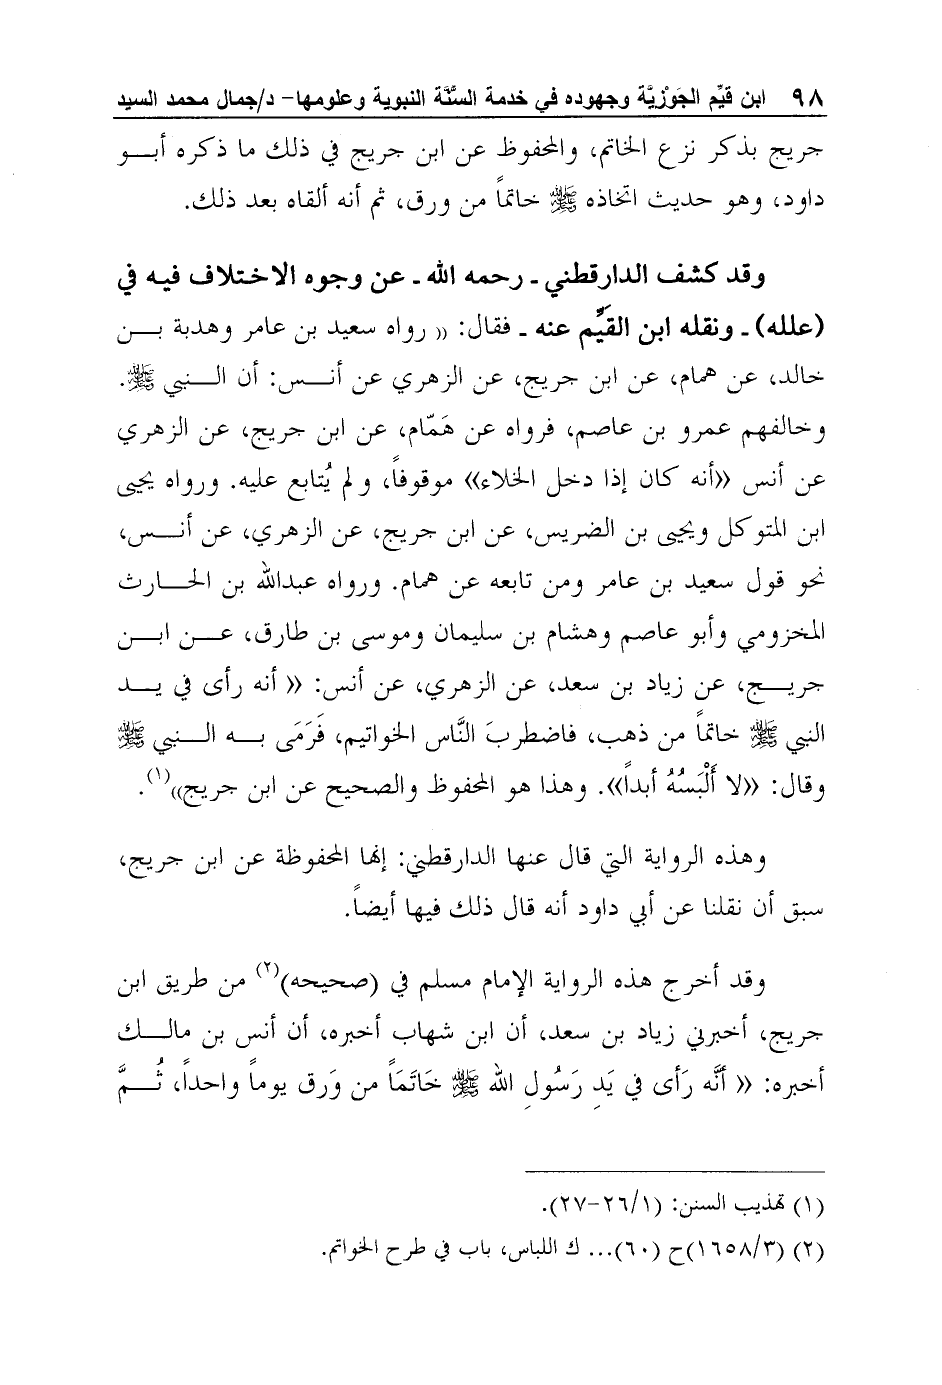 ٩٨ ابن قيِّم الجَوْزيَّة وجهوده في خدمة السُّنَّة النبوية وعلومها- د/جمال محمد السيد
جريج بذكر نزع الخاتم، والمحفوظ عن ابن جريج في ذلك ما ذكره أبـــو
داود، وهو حديث اتخاذه ﷺ خاتماً من ورق، ثم أنه ألقاه بعد ذلك.
وقد كشف الدارقطني ـ رحمه الله ـ عن وجوه الاختلاف فيه في
(علله) ـ ونقله ابن القيَّم عنه ـ فقال: (( رواه سعيد بن عامر وهدبة بـــن
خالد، عن همام، عن ابن جريج، عن الزهري عن أنـــس: أن الـــنبي ﷺ.
وخالفهم عمرو بن عاصم، فرواه عن هَمّام، عن ابن جريج، عن الزهري
عن أنس «أنه كان إذا دخل الخلاء» موقوفاً، ولم يُتابع عليه. ورواه يحيى
ابن المتوكل ويحيى بن الضريس، عن ابن جريج، عن الزهري، عن أنـــس،
نحو قول سعيد بن عامر ومن تابعه عن همام. ورواه عبدالله بن الحـــارث
المخزومي وأبو عاصم وهشام بن سليمان وموسى بن طارق، عـــن ابـــن
جريـــج، عن زياد بن سعد، عن الزهري، عن أنس: « أنه رأى في يـــد
النبي ﷺ خاتماً من ذهب، فاضطربَ النَّاس الخواتيم، فَرَمَى بـــه الـــنبي ﷺ
وقال: «لا أَلْبَسُهُ أبداً». وهذا هو المحفوظ والصحيح عن ابن جريج))(١).
وهذه الرواية التي قال عنها الدارقطني: إنها المحفوظة عن ابن جريج،
سبق أن نقلنا عن أبي داود أنه قال ذلك فيها أيضاً.
وقد أخرج هذه الرواية الإمام مسلم في (صحيحه)(٢) من طريق ابن
جريج، أخبرني زياد بن سعد، أن ابن شهاب أخبره، أن أنس بن مالـــك
أخبره: « أنَّه رَأى في يَدِ رَسُولِ الله ﷺ خَاتَمَاً من وَرق يوماً واحداً، ثُـــمَّ
(١) تهذيب السنن: (٢٦/١-٢٧).
(٢) (١٦٥٨/٣)ح (٦٠)... ك اللباس، باب في طرح الخواتم.